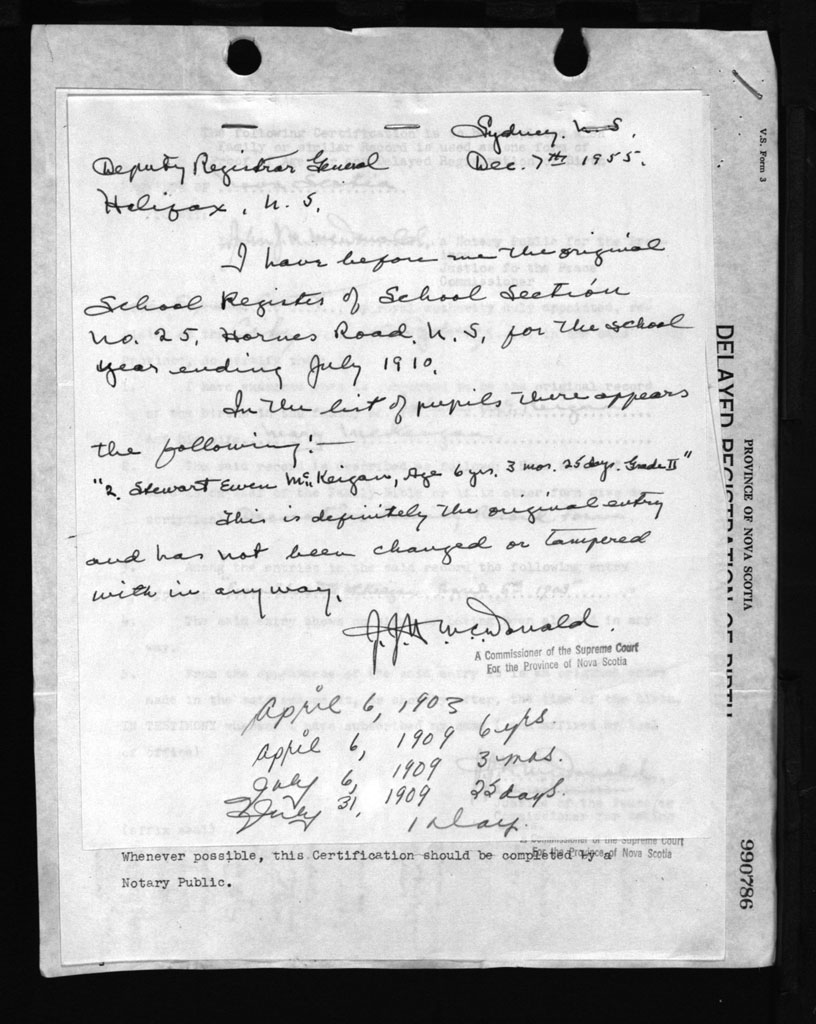 Sydney, N.S.
Dec. 7th 1955.
Deputy Registrar General
Halifax, N.S.
I have before me the original
School Register of School Section
No. 25, Hornes Road, N.S, for the school
year ending July 1910.
In the list of pupils there appears
the following:—
"2. Stewart Ewen McKeigan, Age 6 yrs. 3 mos. 25 days. Grade II"
This is definitely the original entry
and has not been changed or tampered
with in any way.
McDonald.
A Commissioner of the Supreme Court
For the Province of Nova Scotia
April 6, 1903
April 6, 1909 6 yrs
July 6, 1909 3 mos.
July 31, 1909 25 days
1 Day.
A Commissioner of the Supreme Court
For the Province of Nova Scotia
Whenever possible, this Certification should be completed by a
Notary Public.
V.S. Form 3
PROVINCE OF NOVA SCOTIA
DELAYED REGISTRATION OF BIRTH
990786